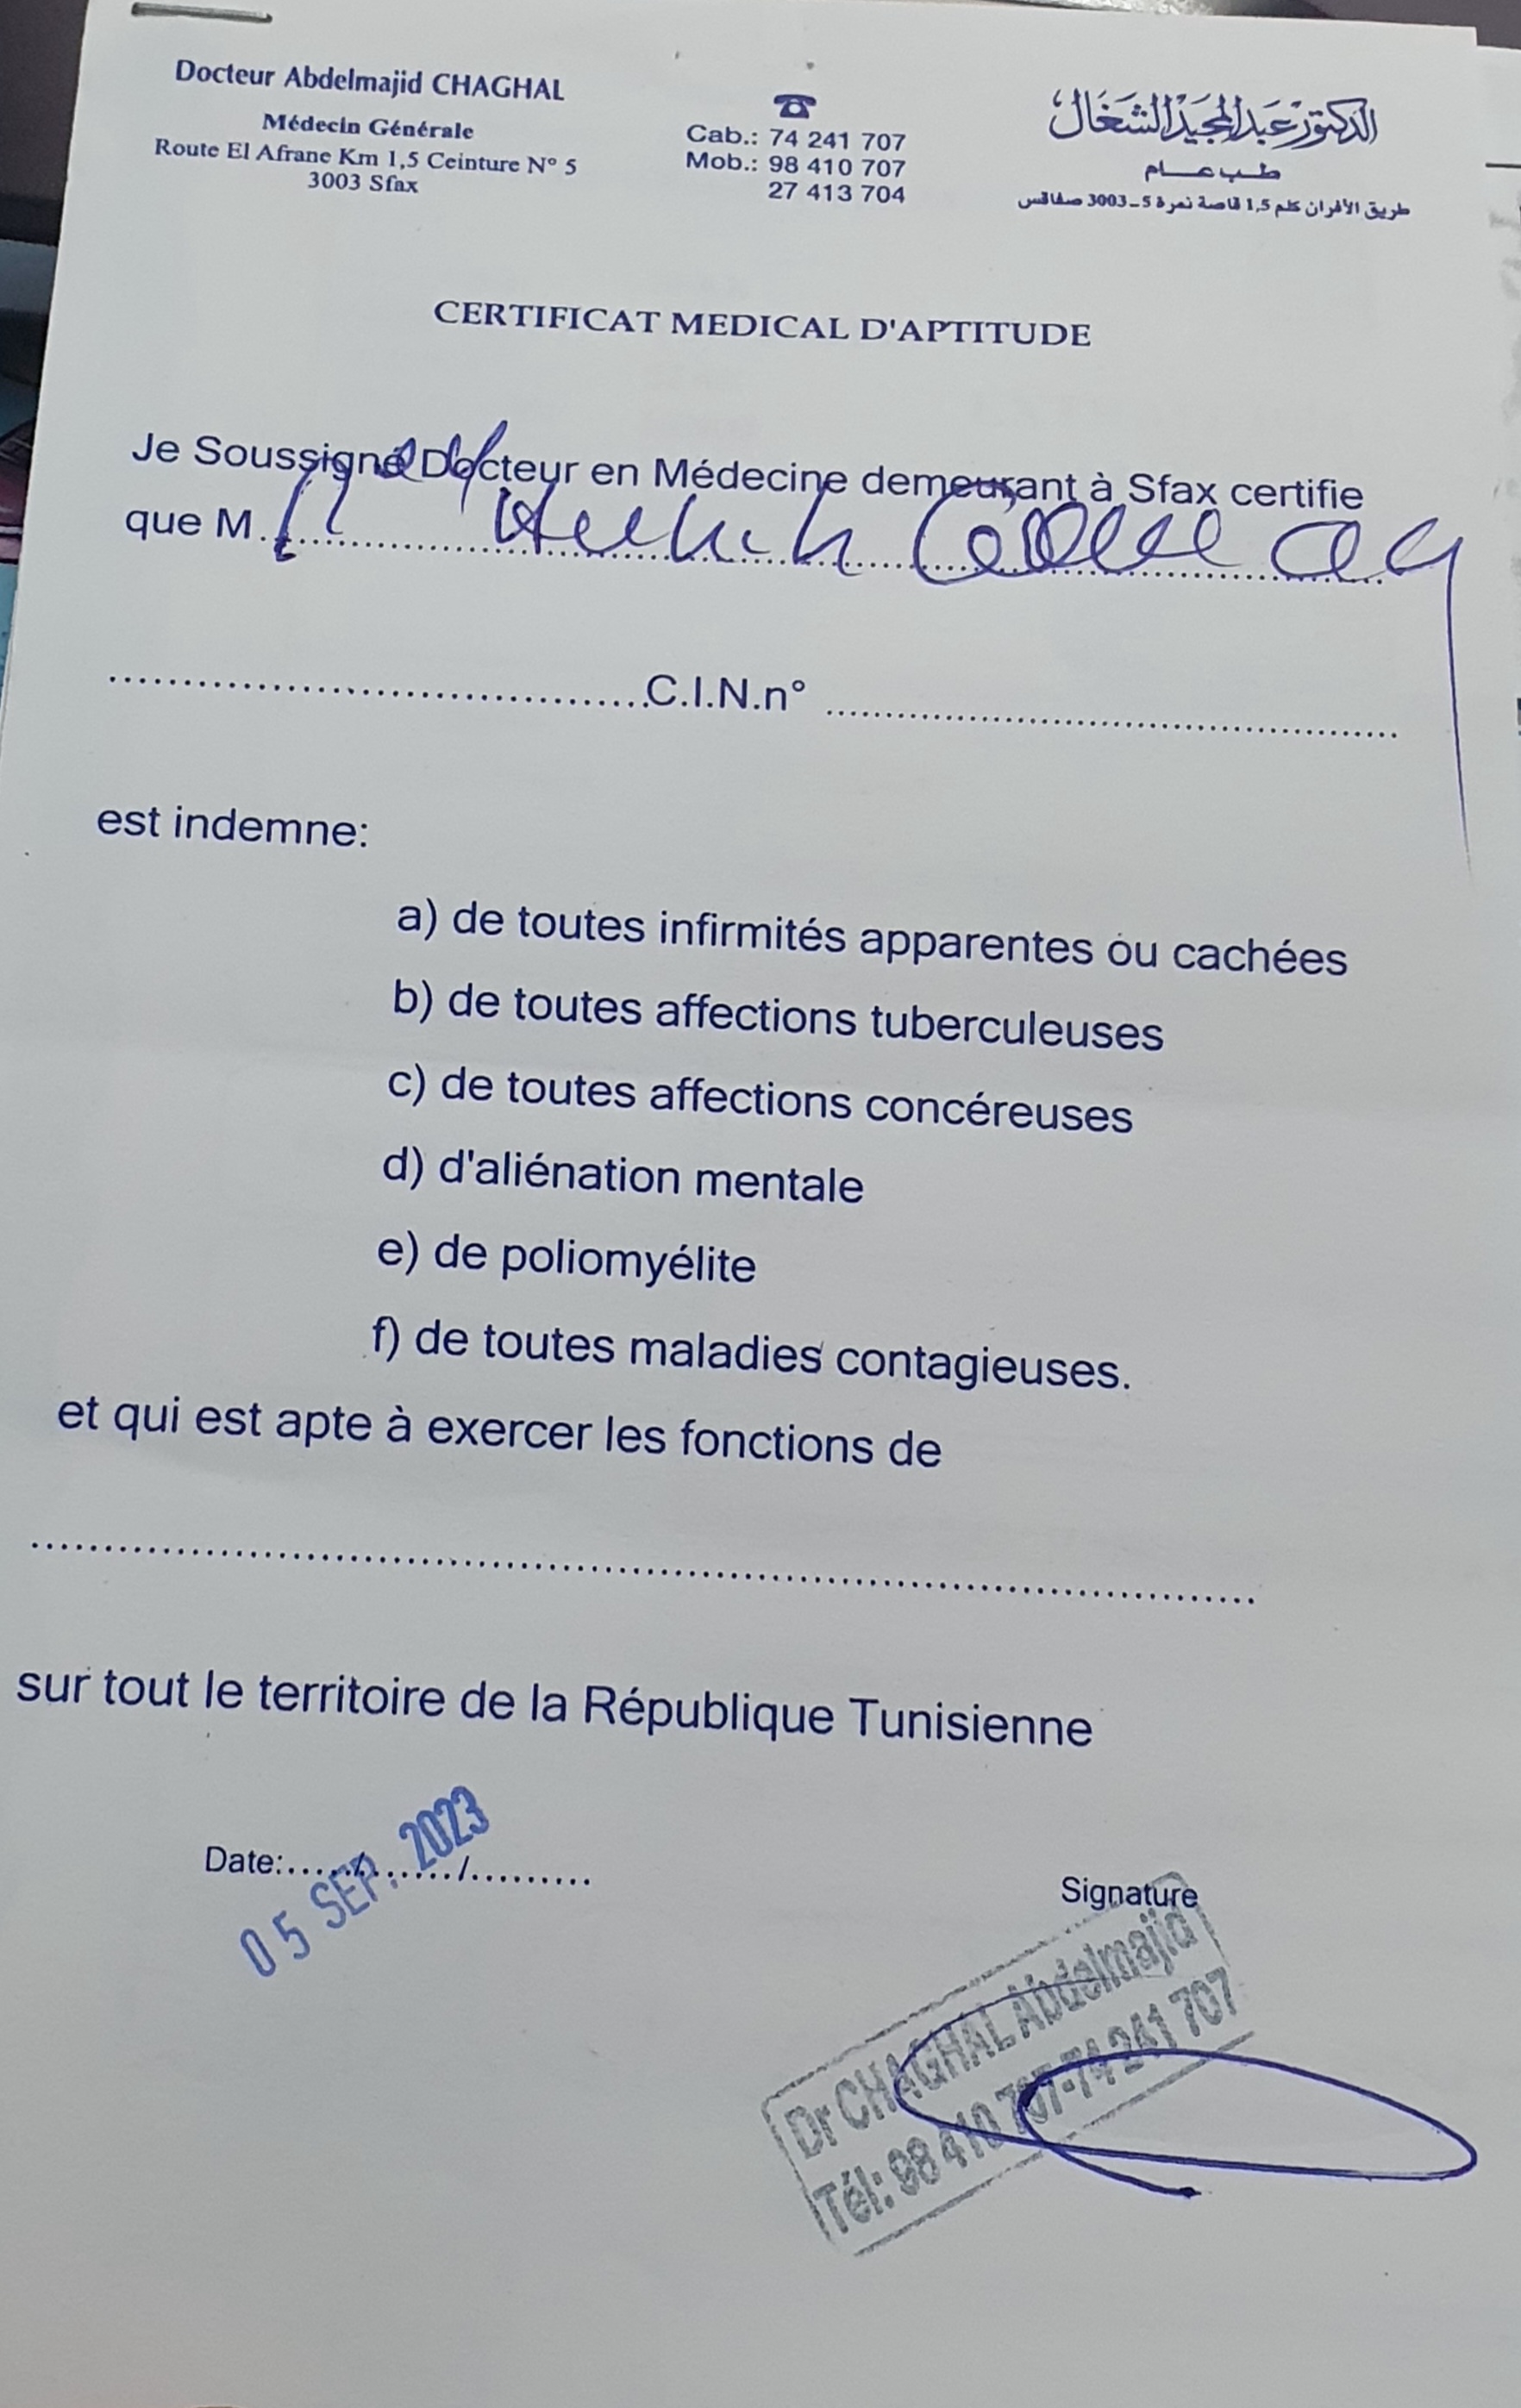 Docteur Abdelmajid CHAGHAL
Médecin Générale
Route El Afrane Km 1,5 Ceinture N° 5
3003 Sfax
Cab.: 74 241 707
Mob.: 98 410 707
27 413 704
الدكتور عبد المجيد الشغال
طب عام
طريق الأفران كلم 1,5 قاصة نمرة 5 - 3003 صفاقس
CERTIFICAT MEDICAL D'APTITUDE
Je Soussigné Docteur en Médecine demeurant à Sfax certifie
que M.
C.I.N.n°
est indemne:
a) de toutes infirmités apparentes ou cachées
b) de toutes affections tuberculeuses
c) de toutes affections concéreuses
d) d'aliénation mentale
e) de poliomyélite
f) de toutes maladies contagieuses.
et qui est apte à exercer les fonctions de
sur tout le territoire de la République Tunisienne
Date:...../......./.........
05 SEP. 2023
Signature
Dr CHAGHAL Abdelmajid
Tél: 98 410 707-74 241 707